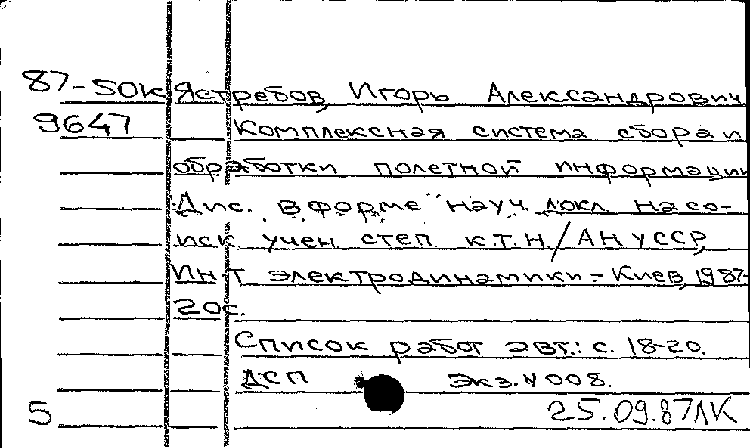 87-50к Ястребов, Игорь Александрович
9647 Комплексная система сбора и
обработки полетной информации
Дис. в форме науч докл на со-
иск учен степ к.т.н/АН УССР,
Ин-т электродинамики.-Киев, 1987-
20с.
Список работ авт.: с. 18-20.
ДСП Экз.N 008.
5 25.09.87ЛК